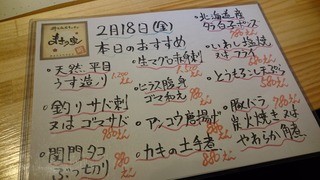 2月18日(金)
本日のおすすめ
・天然平目
うす造り
・釣りサバ刺
又はゴマサバ
・関門タコ
ぶつ切り
・生マグロ赤身刺
・ヒラス脂身
ゴマ和え
・アンコウ唐揚げ
・カキの土手煮
880えん
・北海道産
タラ白子ポン酢
・いわし塩焼
又はフライ
・とうもろこし天ぷら
580えん
・豚バラ
炭火焼き又は
やわらか角煮